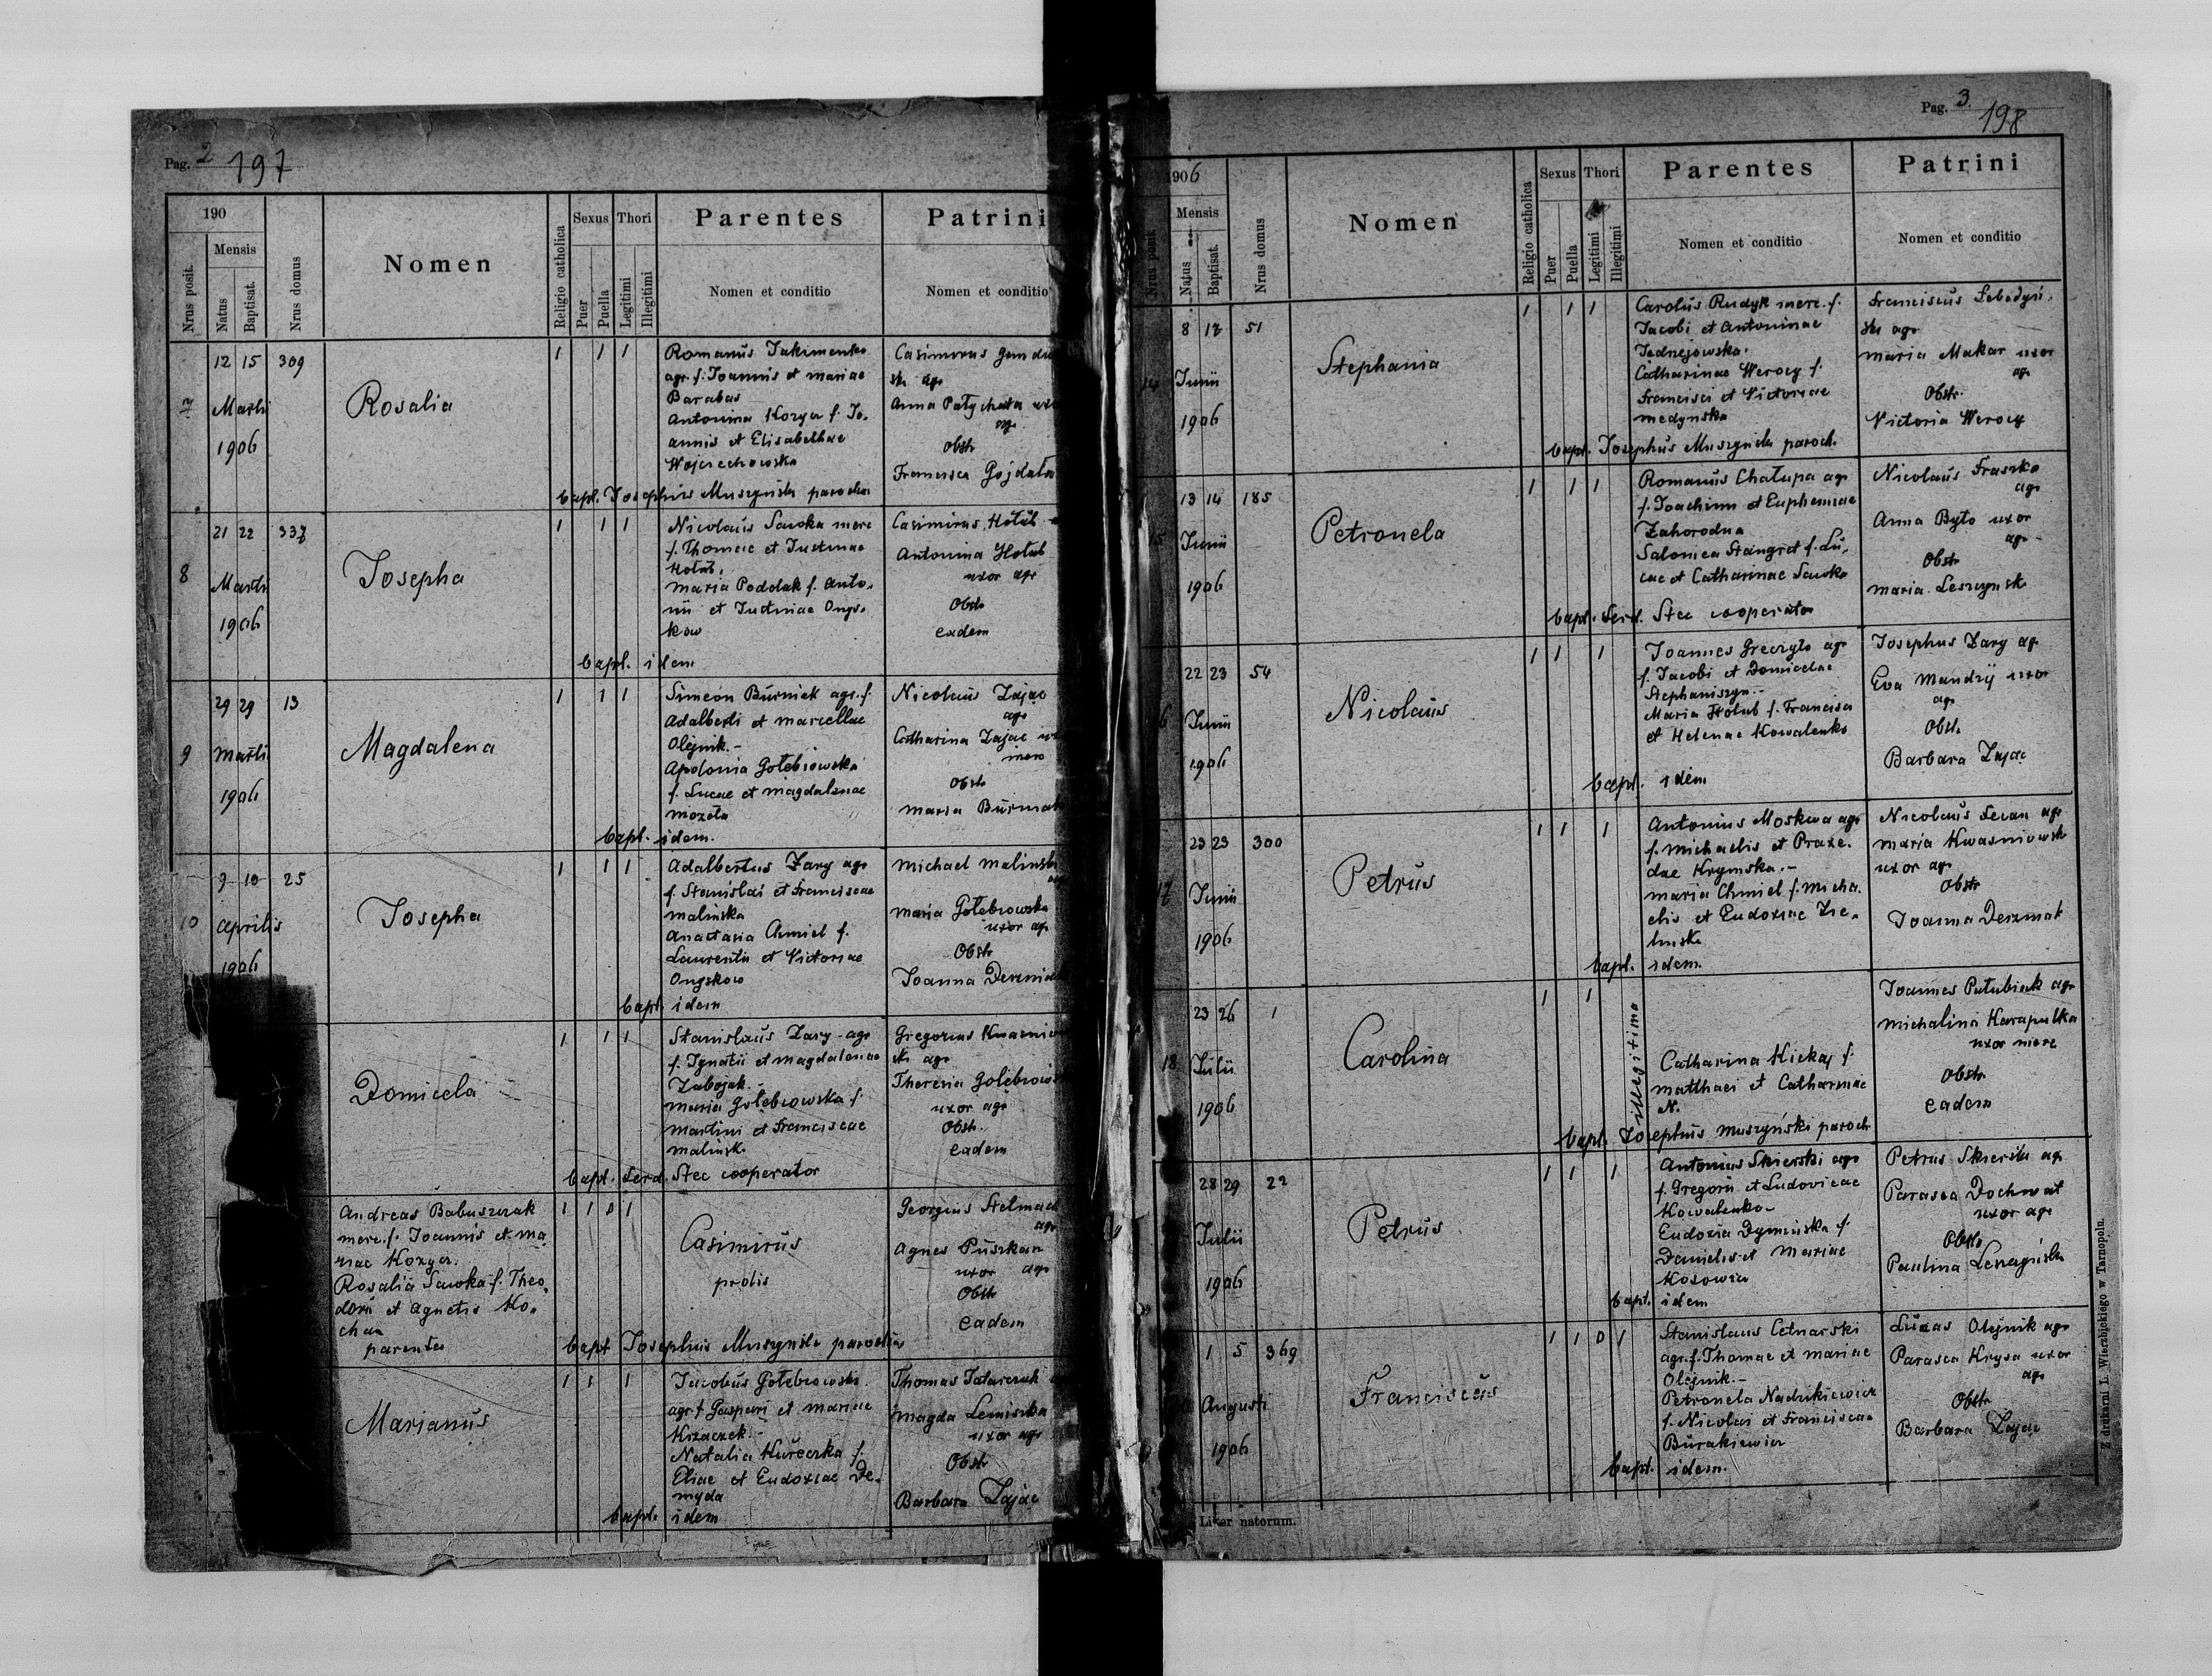 Pag. 2
197
190
Nrus posit.
Mensis
Natus
Baptisat.
Nrus domus
Nomen
Religio catholica
Sexus
Puer
Puella
Thori
Legitimi
Illegitimi
Parentes
Nomen et conditio
Patrini
Nomen et conditio
7
12 15 309
Martii
1906
Rosalia
1 1 1
Romanus Jakimenko
agr. f. Joannis et mariae
Barabas
Antonina Kozyra f. Jo-
annis et Elisabethae
Wojciechowska
Casimirus
ski agr
Anna Patychata
agr.
Obstr
Francisca Gojdała
bapt. Josephus Muszyński parochus
8
21 22 337
Martii
1906
Josepha
1 1 1
Nicolaus Sawka merc
f. Thomae et Justinae
Hołub.
maria Podolak f. Anto-
nii et Justinae Onys-
kow
Casimirus Hołub
Antonina Hołub
uxor agr
Obstr
eadem
bapt. idem
9
29 29 13
Martii
1906
Magdalena
1 1 1
Simeon Burniak agr. f.
Adalberti et marcellae
Olejnik.-
Apolonia Gołębiowska
f. Lucae et magdalenae
mozoła
Nicolaus Zając
agr
Catharina Zając
Obstr
maria Burniak
bapt. idem.
10
9 10 25
Aprilis
1906
Josepha
1 1 1
Adalbertus Żary agr
f. Stanislai et Franciscae
malinska
Anastasia Chmiel f.
Laurentii et Victoriae
Onyskow
michael malinski
maria Gołębiowska
uxor agr
Obstr
Joanna
bapt. idem
Domicela
1 1 1
Stanislaus Żary - agr
f. Ignatii et magdalenae
Zabojak.-
maria Gołębiowska f.
martini et Franciscae
malinsk.
Gregorius
ski agr
Theresia
uxor agr
Obstr.
eadem
bapt. Ferd. Stec cooperator
Andreas Babuszczak
merc. f. Joannis et ma
riae Kozyra.
Rosalia Sawka f. Theo
dori et Agnetis Ko-
chan
parentes
1 1 0 1
Casimirus
prolis
Georgius Stelmach
agr
Agnes Puszkar
uxor agr
Obstr
eadem
bapt Josephus Muszyński parochus
Marjanus
1 1 1
Jacobus Gołębiowski
agr. f. Gaspari et mariae
Krzaczek.-
Natalia Kureczka f.
Eliae et Eudoxiae De-
myda
Thomas Tatarczuk
magda Lemiszka
uxor agr
Obstr
Barbara Zając
bapt. idem
Pag. 3.
198
1906
Nrus posit.
Mensis
Natus
Baptisat.
Nrus domus
Nomen
Religio catholica
Sexus
Puer
Puella
Thori
Legitimi
Illegitimi
Parentes
Nomen et conditio
Patrini
Nomen et conditio
14
8 17 51
Junii
1906
Stephania
1 1 1
Carolus Rudyk merc. f.
Jacobi et Antoninae
Jednejowska.
Catharinae Werocy f.
Francisci et Victoriae
medynska
Franciscus Lebedyń-
ski agr
maria Makar uxor
agr
Obstr.
Victoria Werocy
bapt. Josephus Muszyński paroch.
15
13 14 185
Junii
1906
Petronela
1 1 1
Romanus Chałupa agr
f. Joachimi et Euphemiae
Zahorodna
Salomea Stangret f. Lu-
cae et Catharinae Sawka
Nicolaus Fraszka
agr
Anna Byto uxor
agr-
Obstr
maria Leszczynsk
bapt. Ferd. Stec cooperator
16
22 23 54
Junii
1906
Nicolaus
1 1 1
Joannes Greczyło agr
f. Jacobi et Domicelae
Stephaniszyn.-
Maria Hołub f. Francisci
et Helenae Kowalenko
Josephus Żary agr
Eva Mandzij uxor
agr
Obstr
Barbara Zając
bapt. idem
17
23 23 300
Junii
1906
Petrus
1 1 1
Antonius Moskwa agr
f. michaelis et Praxe-
dae Krymska.-
maria Chmiel f. micha-
elis et Eudoxiae Zie-
linsk.
Nicolaus Lewan agr
maria Kwasniowsk
uxor agr
Obstr
Joanna
bapt. idem.
18
23 26 1
Julii
1906
Carolina
1 1
illegitima
Catharina Kickaj f.
matthaei et Catharinae
N.
Joannes Patubiak agr
michalina Karapulka
uxor merc
Obstr
eadem
bapt. Josephus muszyński paroch
28 29 22
Julii
1906
Petrus
1 1 1
Antonius Skierski agr
f. Gregorii et Ludovicae
Kowalenko-
Eudoxia Dyminska f.
Danielis et Mariae
Kosowicz
Petrus Skierski agr
Parasca Dochwat
uxor agr
Obstr
Paulina
bapt. idem
1 5 369
Augusti
1906
Franciscus
1 1 0 1
Stanislaus Cetnarski
agr. f. Thomae et mariae
Olejnik.-
Petronela Nadzikiewicz
f. Nicolai et Franciscae
Burakiewicz
Lucas Olejnik agr
Parasca Krysa uxor
agr
Obstr
Barbara Zając
bapt. idem.
Liber natorum.
Z drukarni L. Wierzbickiego w Tarnopolu.